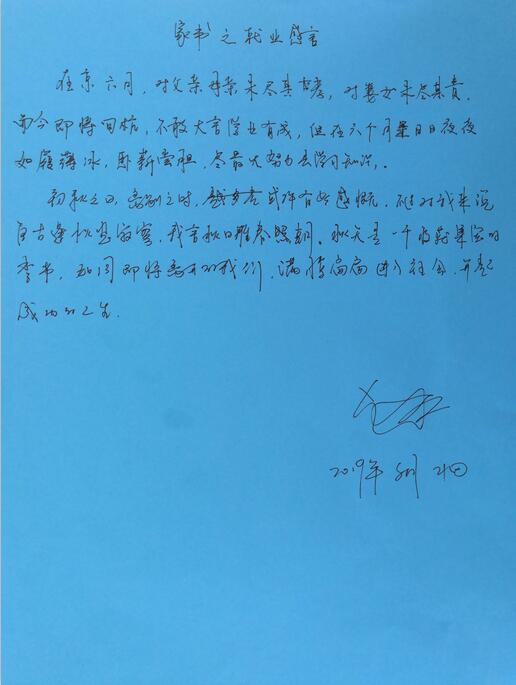 家书之就业感言
在京六月，对父亲母亲未尽其孝，对妻女未尽其责。
而今即将回杭，不敢大言学业有成，但在六个月里日日夜夜
如履薄冰，卧薪尝胆，尽最大努力去学习知识。
初秋之日，离别之时，或许有些感慨，但对我来说
自古逢秋悲寂寥，我言秋日胜春朝。秋天是一个收获果实的
季节，如同即将离开的我们，满腾腾 进入社会，开起
成功的人生.
2019年8月21日